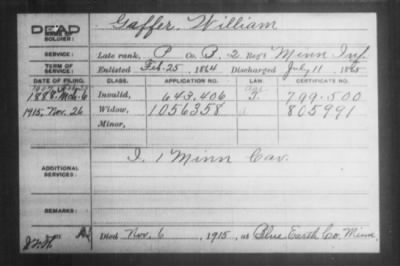 DEAD
NAME OF SOLDIER: Gaffer, William
SERVICE: Late rank, P Co. B, 2 Reg't Minn Inf.
TERM OF SERVICE: Enlisted Feb. 25, 1864 Discharged July 11, 1865
DATE OF FILING. CLASS. APPLICATION NO. LAW. CERTIFICATE NO.
1888. Invalid, 643.406 799.500
1915, Nov. 26 Widow, 1056358 805991
Minor,
ADDITIONAL SERVICES: I. 1 Minn Cav.
REMARKS:
Died Nov. 6, 1915, at Blue Earth Co. Minn